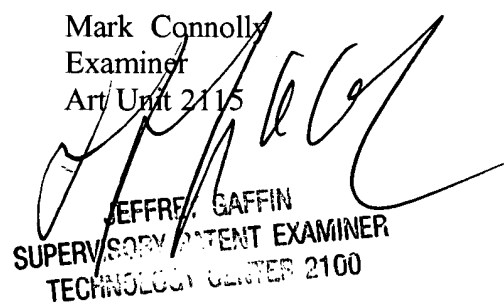 Mark Connolly
Examiner
Art Unit 2115
JEFFREY GAFFIN
SUPERVISORY PATENT EXAMINER
TECHNOLOGY CENTER 2100